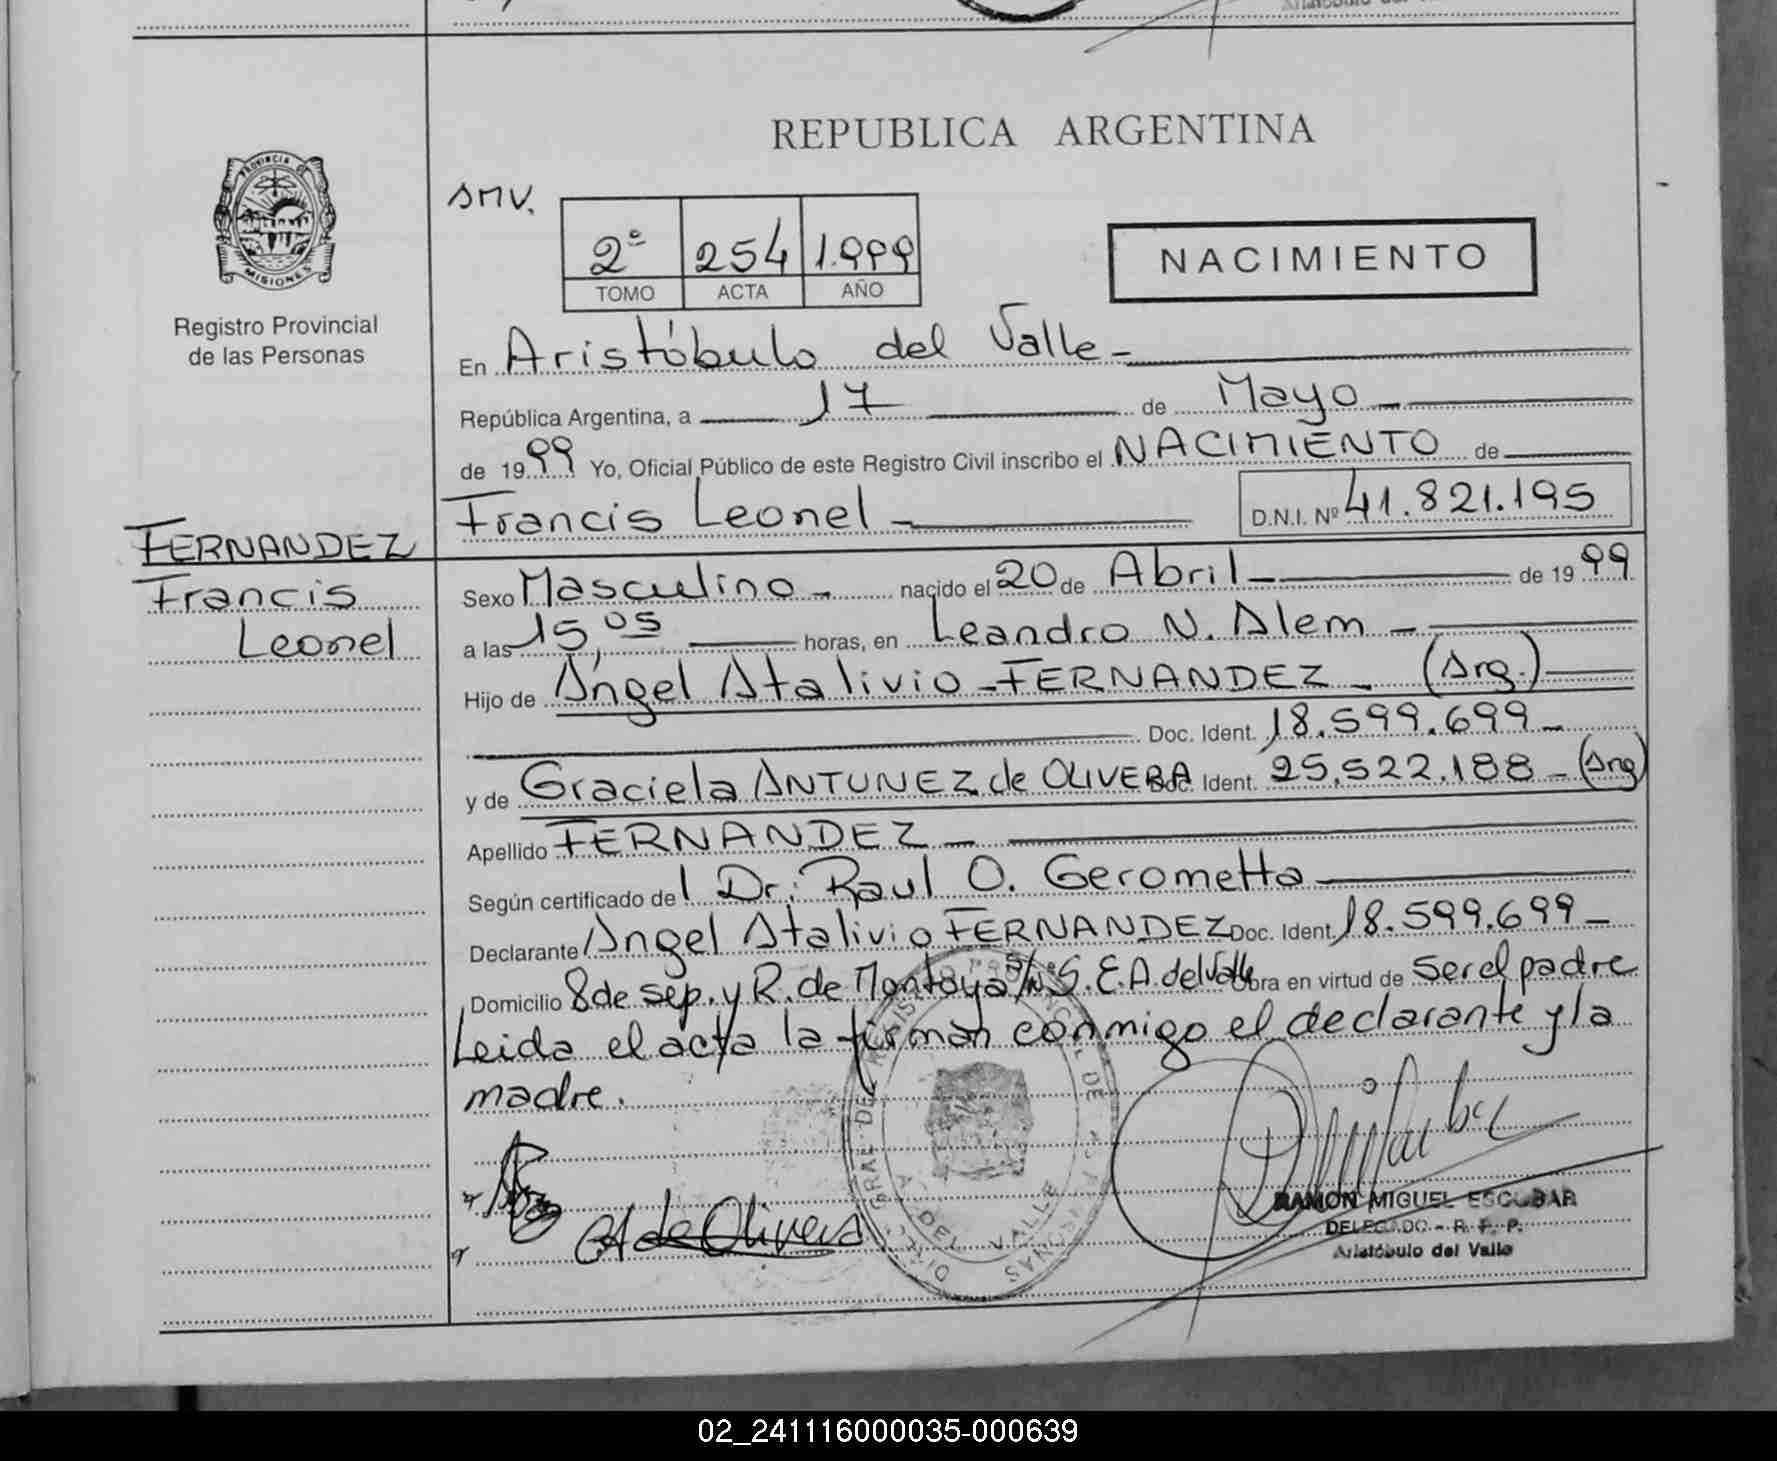 REPUBLICA ARGENTINA
PROVINCIA DE MISIONES
Registro Provincial
de las Personas
SMV.
2º 254 1.999
TOMO ACTA AÑO
NACIMIENTO
En Aristóbulo del Valle -
República Argentina, a 17 de Mayo -
de 1999 Yo, Oficial Público de este Registro Civil inscribo el NACIMIENTO de
Francis Leonel - D.N.I. Nº 41.821.195
FERNANDEZ
Francis
Leonel
Sexo Masculino - nacido el 20 de Abril - de 1999
a las 15,05 horas, en Leandro N. Alem -
Hijo de Angel Atalivio FERNANDEZ - (Arg.)
Doc. Ident. 18.599.699 -
y de Graciela ANTUNEZ de OLIVERA Doc. Ident. 25.522.188 - (Arg)
Apellido FERNANDEZ -
Según certificado del Dr: Raul O. Gerometta
Declarante Angel Atalivio FERNANDEZ Doc. Ident. 18.599.699 -
Domicilio 8 de sep. y R. de Montoya S/Nº S. E. A. del Valle Obra en virtud de ser el padre
Leida el acta la firman conmigo el declarante y la
madre.
A de Olivera
RAMON MIGUEL ESCOBAR
DELEGADO - R. P. P.
Aristóbulo del Valle
02_241116000035-000639